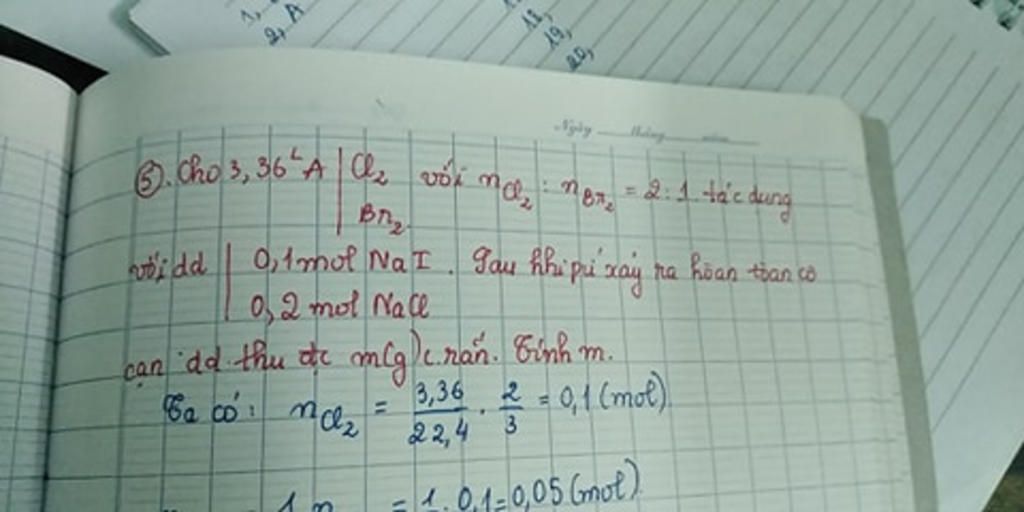 1,
2, A
18,
19,
20,
Ngày tháng năm
⑤. Cho 3,36 L A | Cl₂ với n Cl₂ : n Br₂ = 2:1 tác dụng
Br₂
với dd | 0,1 mol NaI. Sau khi pứ xảy ra hoàn toàn cô
0,2 mol NaCl
cạn dd thu đc m(g) c rắn. Tính m.
Ta có: n Cl₂ = 3,36/22,4 . 2/3 = 0,1 (mol)
1 n = 1 . 0,1 = 0,05 (mol)